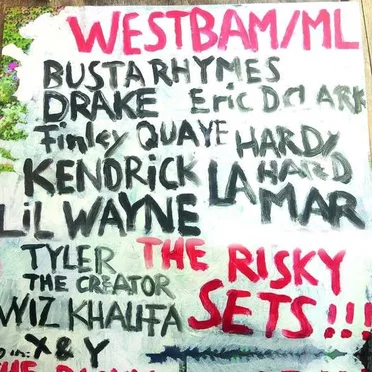 WESTBAM/ML
BUSTA RHYMES
DRAKE Eric D CLARK
Finley QUAYE HARD/
HARD
KENDRICK LA MAR
LIL WAYNE
TYLER THE RISKY
THE CREATOR
WIZ KHALIFA SETS!!!
X & Y